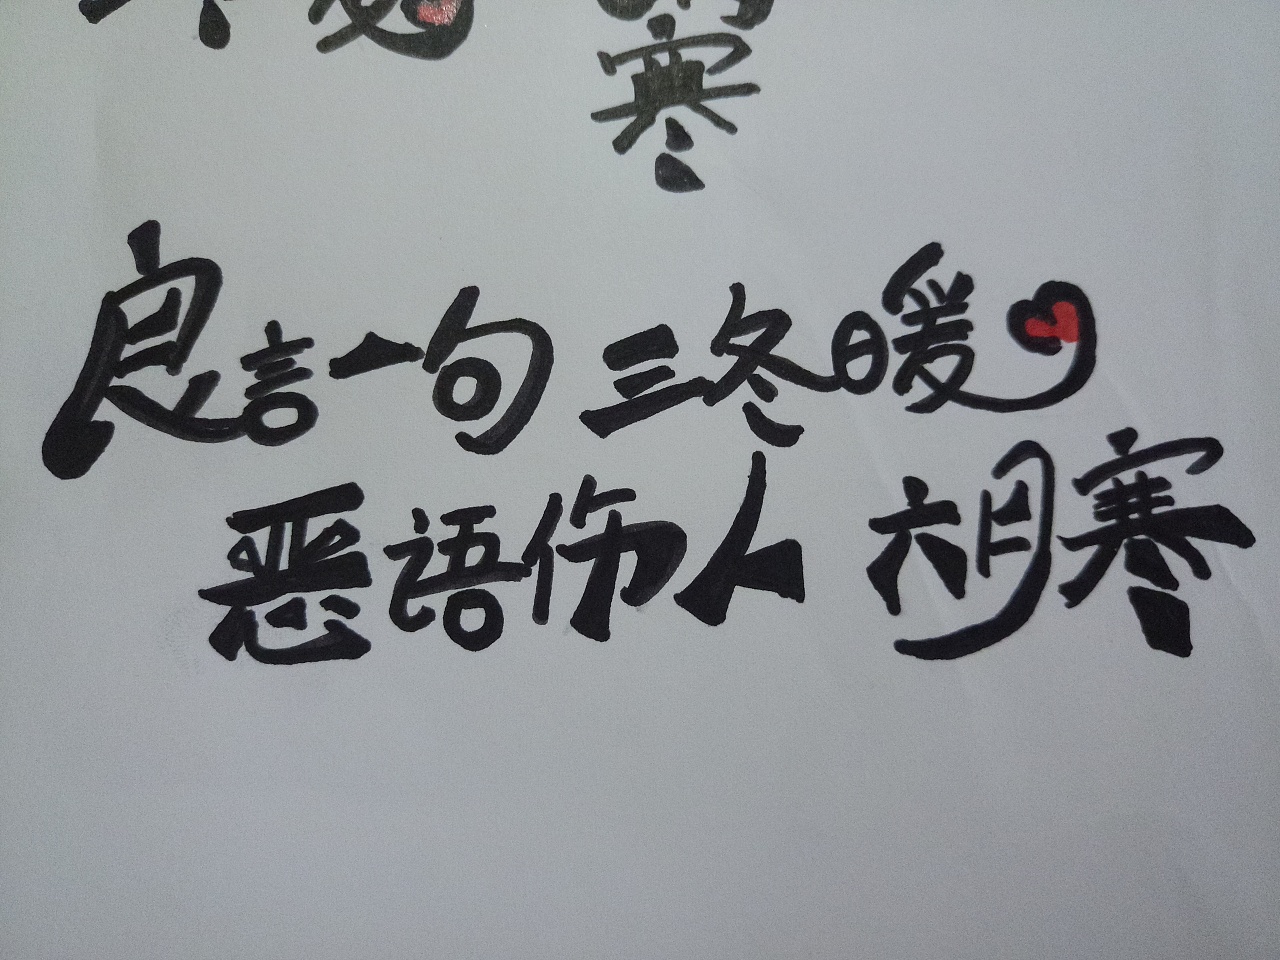 寒
良言一句 三冬暖
恶语伤人 六月寒